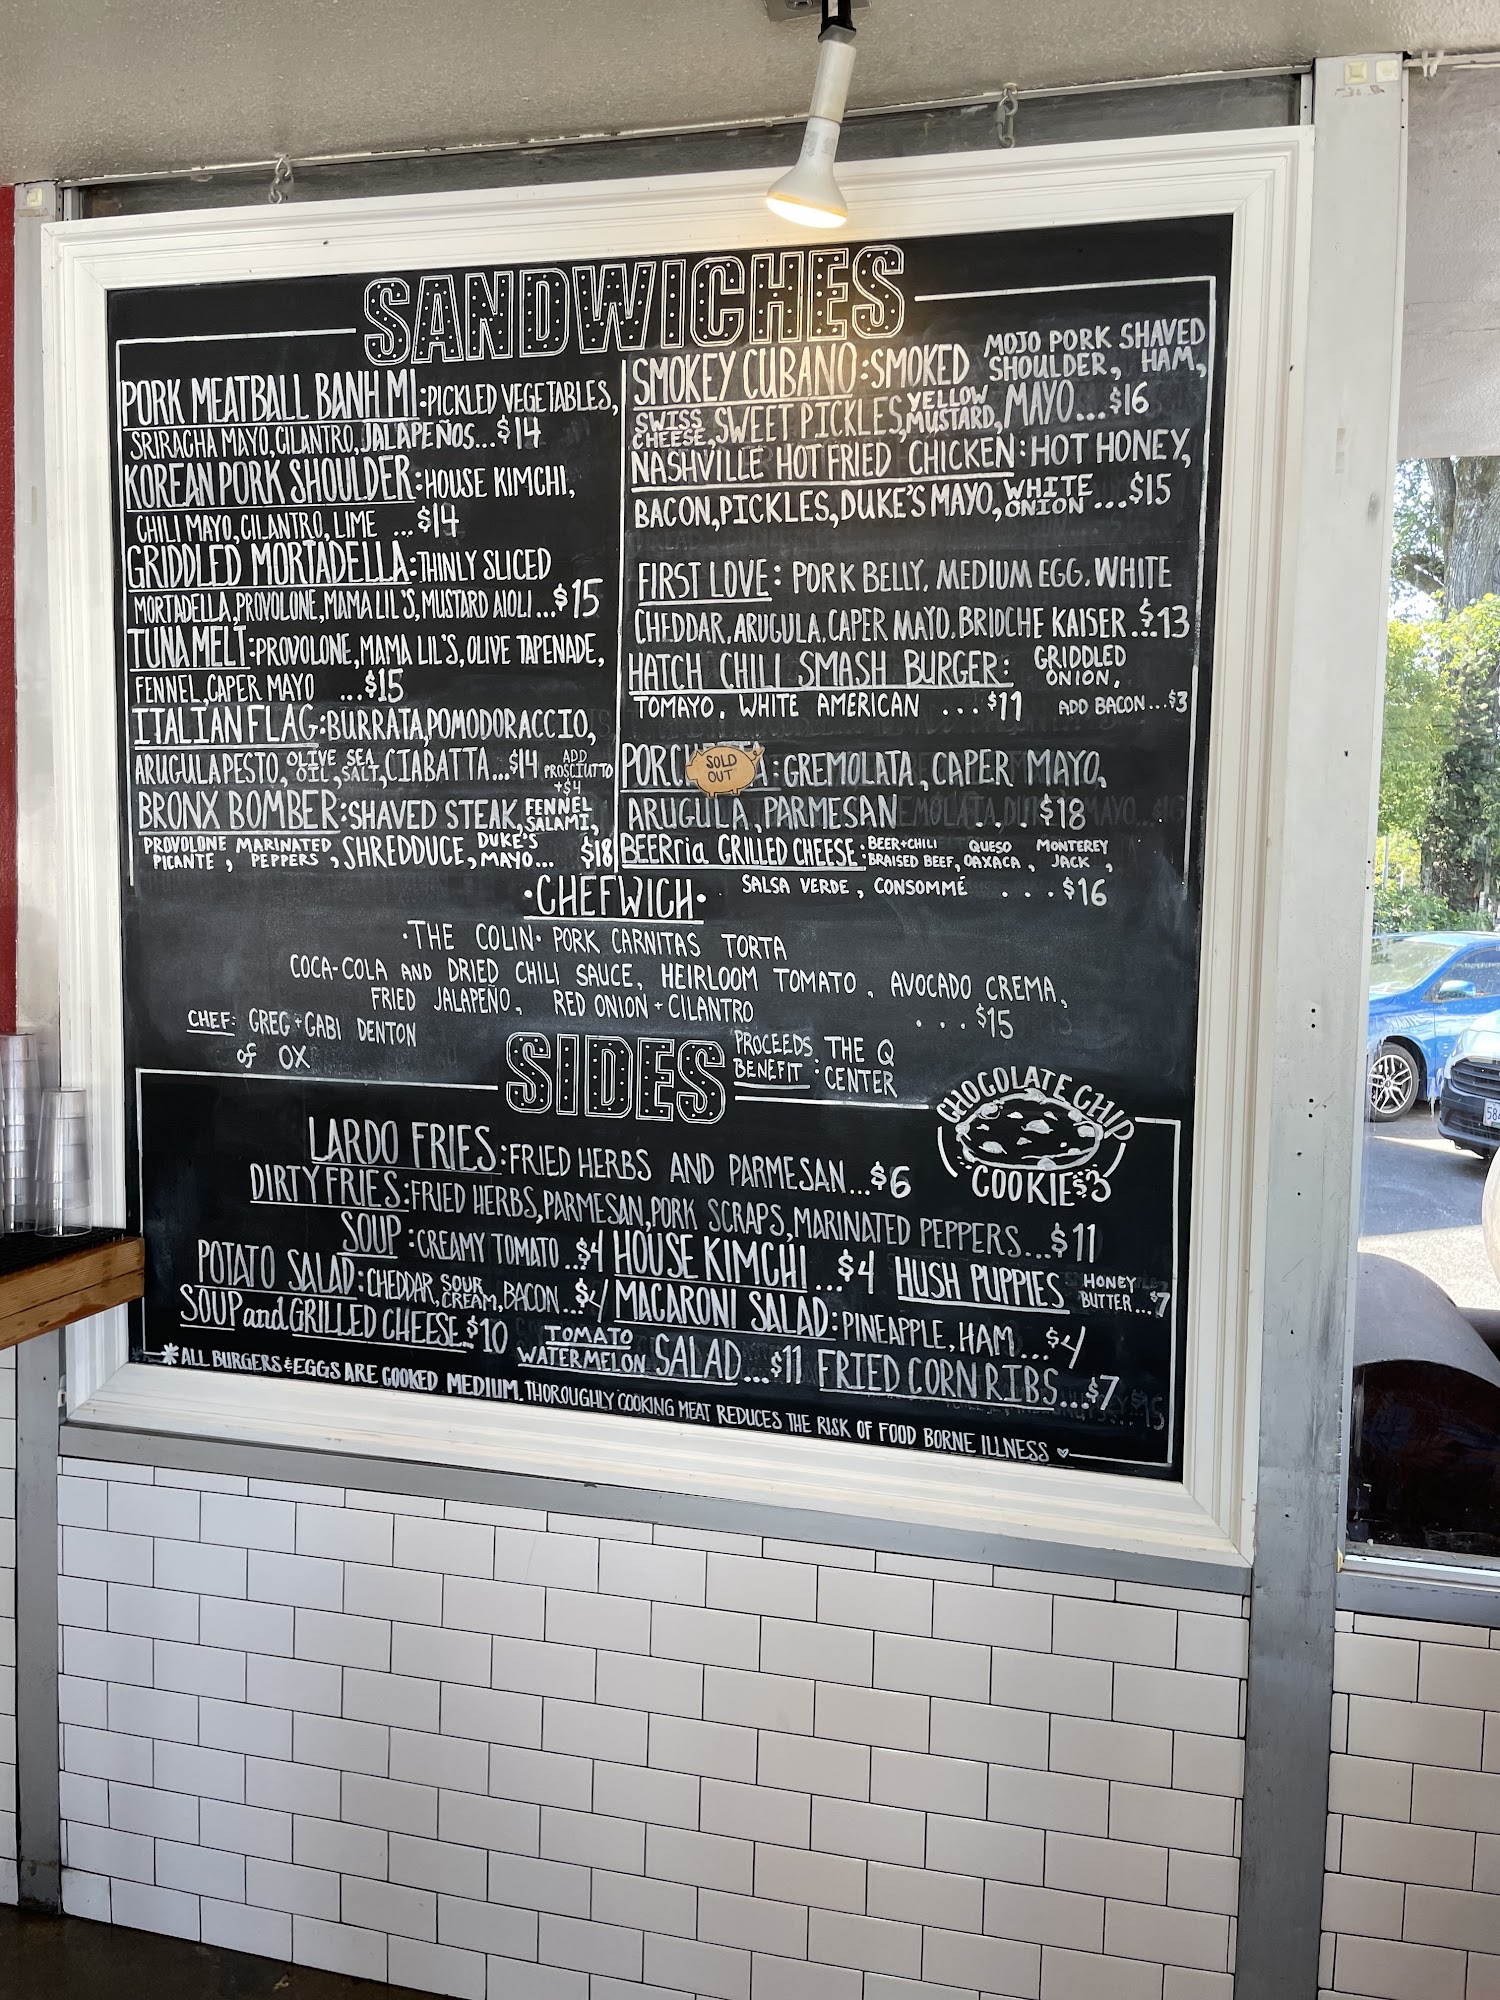 SANDWICHES
PORK MEATBALL BANH MI: PICKLED VEGETABLES,
SRIRACHA MAYO, CILANTRO, JALAPEÑOS...$14
KOREAN PORK SHOULDER: HOUSE KIMCHI,
CHILI MAYO, CILANTRO, LIME ...$14
GRIDDLED MORTADELLA: THINLY SLICED
MORTADELLA, PROVOLONE, MAMA LIL'S, MUSTARD AIOLI...$15
TUNA MELT: PROVOLONE, MAMA LIL'S, OLIVE TAPENADE,
FENNEL, CAPER MAYO ...$15
ITALIAN FLAG: BURRATA, POMODORACCIO,
ARUGULA PESTO, OLIVE OIL, SEA SALT, CIABATTA...$14 ADD PROSCIUTTO +$4
BRONX BOMBER: SHAVED STEAK, FENNEL SALAMI,
PROVOLONE PICANTE, MARINATED PEPPERS, SHREDDUCE, DUKE'S MAYO... $18
SMOKEY CUBANO: SMOKED MOJO PORK SHOULDER, SHAVED HAM,
SWISS CHEESE, SWEET PICKLES, YELLOW MUSTARD, MAYO...$16
NASHVILLE HOT FRIED CHICKEN: HOT HONEY,
BACON, PICKLES, DUKE'S MAYO, WHITE ONION ...$15
FIRST LOVE: PORK BELLY, MEDIUM EGG, WHITE
CHEDDAR, ARUGULA, CAPER MAYO, BRIOCHE KAISER ...$13
HATCH CHILI SMASH BURGER: GRIDDLED ONION,
TOMAYO, WHITE AMERICAN ...$11 ADD BACON...$3
SOLD OUT
PORC A: GREMOLATA, CAPER MAYO,
ARUGULA, PARMESAN .... $18
BEERria GRILLED CHEESE: BEER+CHILI BRAISED BEEF, QUESO OAXACA, MONTEREY JACK,
SALSA VERDE, CONSOMMÉ ...$16
·CHEFWICH·
·THE COLIN· PORK CARNITAS TORTA
COCA-COLA AND DRIED CHILI SAUCE, HEIRLOOM TOMATO, AVOCADO CREMA,
FRIED JALAPEÑO, RED ONION + CILANTRO ...$15
CHEF: GREG + GABI DENTON
of OX
PROCEEDS BENEFIT: THE Q CENTER
SIDES
CHOCOLATE CHIP
COOKIE $3
LARDO FRIES: FRIED HERBS AND PARMESAN...$6
DIRTY FRIES: FRIED HERBS, PARMESAN, PORK SCRAPS, MARINATED PEPPERS...$11
SOUP: CREAMY TOMATO..$4 HOUSE KIMCHI...$4 HUSH PUPPIES HONEY BUTTER...$7
POTATO SALAD: CHEDDAR, SOUR CREAM, BACON...$4 MACARONI SALAD: PINEAPPLE, HAM...$4
SOUP and GRILLED CHEESE..$10 TOMATO WATERMELON SALAD...$11 FRIED CORN RIBS...$7
*ALL BURGERS & EGGS ARE COOKED MEDIUM. THOROUGHLY COOKING MEAT REDUCES THE RISK OF FOOD BORNE ILLNESS ♥